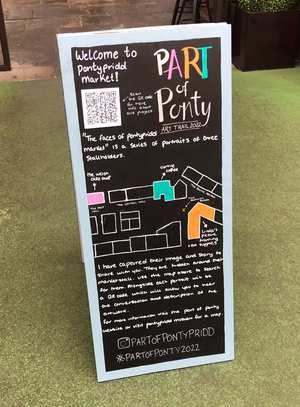 Welcome to
Pontypridd
market!
PART
of
Ponty
ART TRAIL 2022
Scan
the QR code
for more
info about
our project
"The faces of pontypridd
market" is a series of portraits of three
stallholders.
The welsh
cake shop
coffee
Linda's
picture
framing
+ art
supplies
I have captured their image and story to
share with you. They are hidden around their
market stall. Use the map above to search
for them. Alongside each portrait will be
a QR code which will allow you to hear
the conversation and description of the
artwork.
For more information visit the part of ponty
website or visit pontypridd museum for a map.
PARTOFPONTYPRIDD
#PARTOFPONTY2022